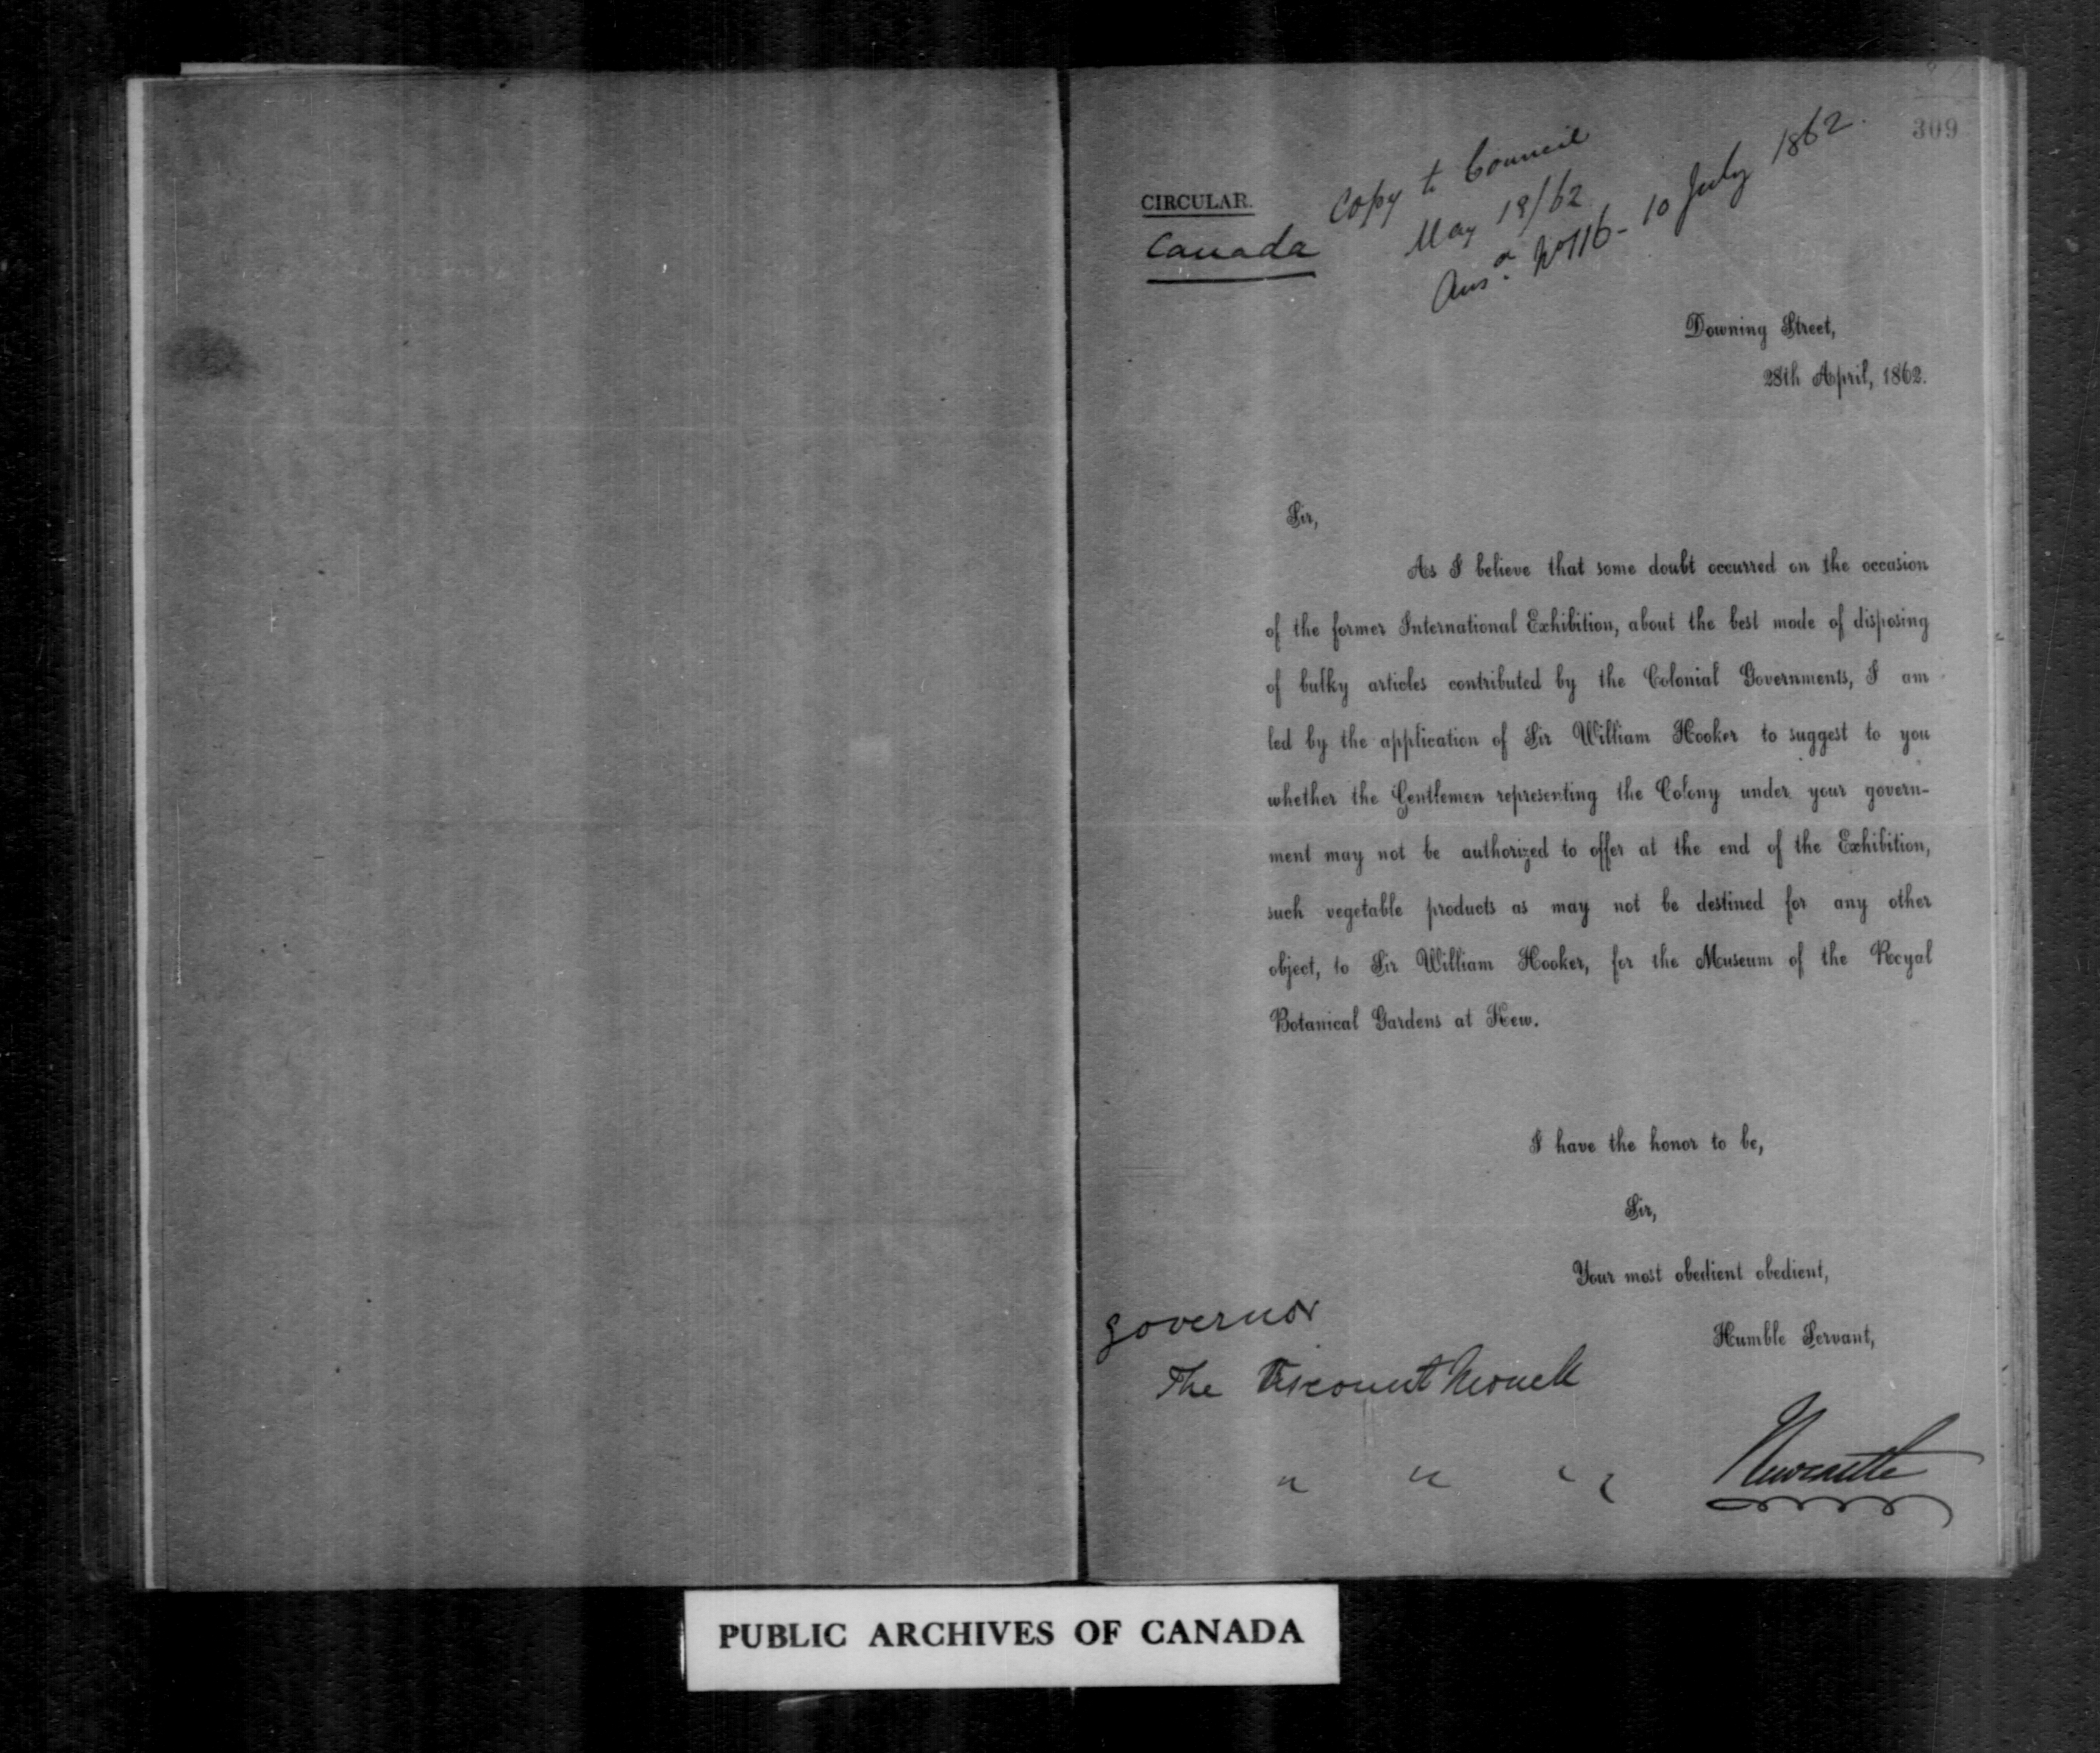 309
CIRCULAR.
Canada
Copy to Council
May 19/62
Ansd. No 116 - 10 July 1862.
Downing Street,
28th April, 1862.
Sir,
As I believe that some doubt occurred on the occasion
of the former International Exhibition, about the best mode of disposing
of bulky articles contributed by the Colonial Governments, I am
led by the application of Sir William Hooker to suggest to you
whether the Gentlemen representing the Colony under your govern-
ment may not be authorized to offer at the end of the Exhibition,
such vegetable products as may not be destined for any other
object, to Sir William Hooker, for the Museum of the Royal
Botanical Gardens at Kew.
I have the honor to be,
Sir,
Your most obedient obedient,
Humble Servant,
Governor
The Viscount Monck
Newcastle
PUBLIC ARCHIVES OF CANADA